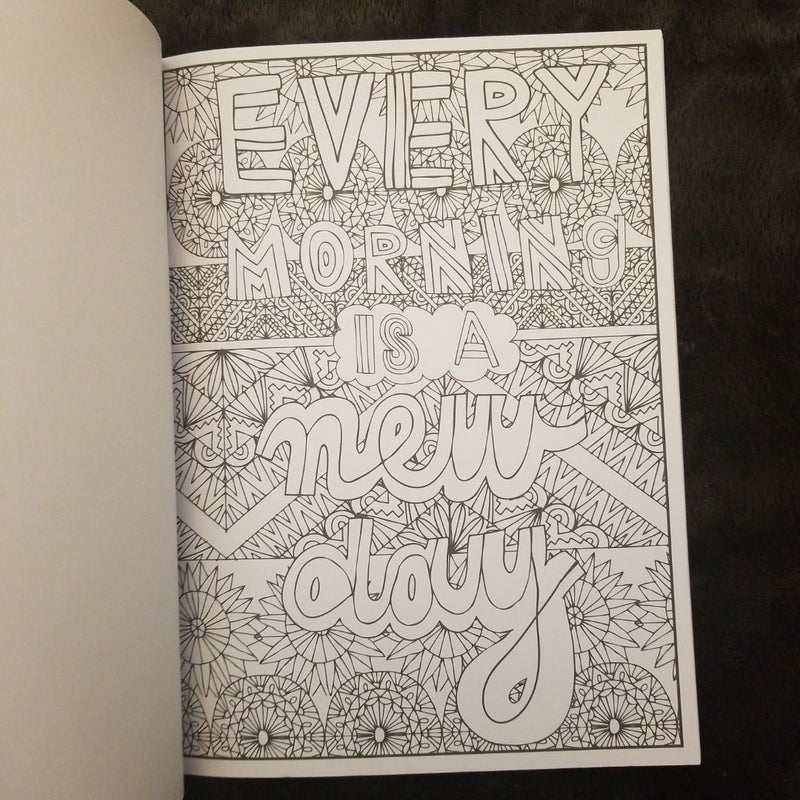 EVERY
MORNING
IS A
new
day